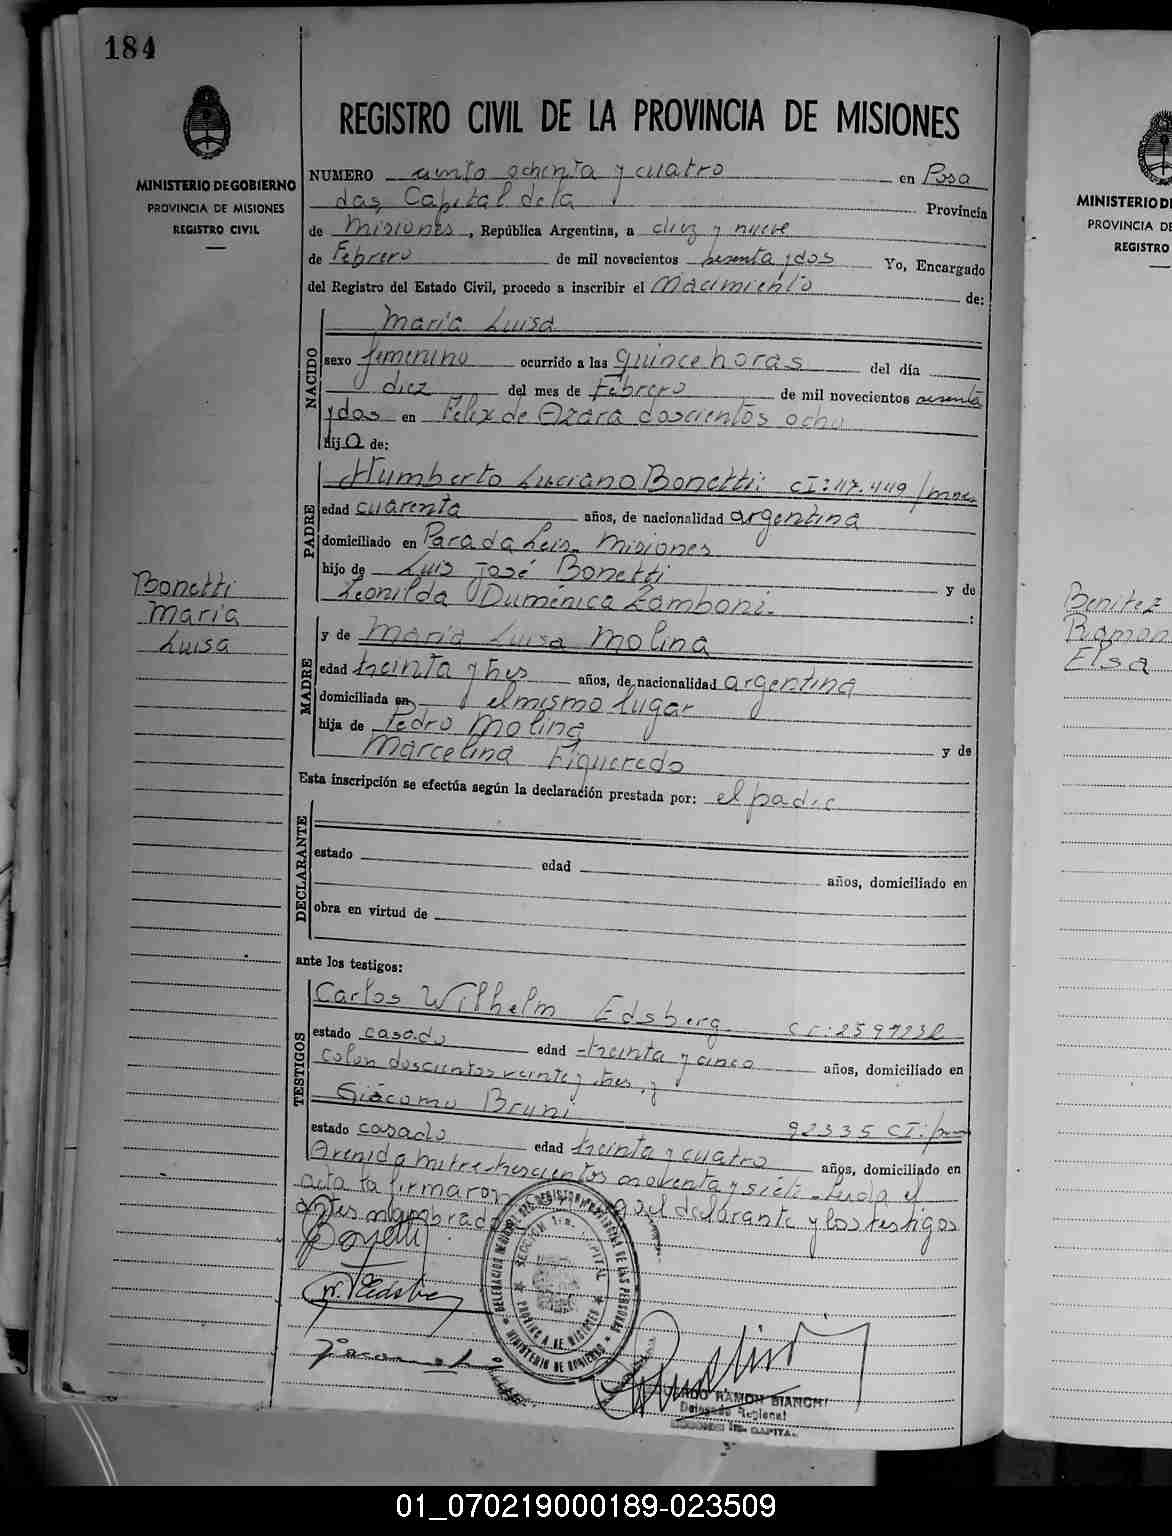 184
REGISTRO CIVIL DE LA PROVINCIA DE MISIONES
MINISTERIO DE GOBIERNO
PROVINCIA DE MISIONES
REGISTRO CIVIL
NUMERO ciento ochenta y cuatro en Posa
das, Capital de la Provincia
de Misiones, República Argentina, a diez y nueve
de Febrero de mil novecientos sesenta y dos Yo, Encargado
del Registro del Estado Civil, procedo a inscribir el Nacimiento de:
NACIDO
María Luisa
sexo femenino ocurrido a las quince horas del día
diez del mes de Febrero de mil novecientos sesenta
y dos en Felix de Azara doscientos ocho
hija de:
PADRE
Humberto Luciano Bonetti: CI: 117.449/mnes
edad cuarenta años, de nacionalidad argentina
domiciliado en Parada Leis. Misiones
hijo de Luis José Bonetti y de
Leonilda Duménica Zamboni.:
Bonetti
María
Luisa
MADRE
y de María Luisa Molina
edad treinta y tres años, de nacionalidad argentina
domiciliada en el mismo lugar
hija de Pedro Molina y de
Marcelina Figueredo
Esta inscripción se efectúa según la declaración prestada por: el padre
DECLARANTE
estado edad años, domiciliado en
obra en virtud de
ante los testigos:
TESTIGOS
Carlos Wilhelm Edsberg CI: 2597232
estado casado edad treinta y cinco años, domiciliado en
colon doscientos veinte y tres, y
Giácomo Bruni 92335 CI:
estado casado edad treinta y cuatro años, domiciliado en
Avenida mitre trescientos noventa y siete leida el
acta la firmaron el declarante y los testigos
antes nombrados.
Bonetti
DELEGACION REGISTRO PROVINCIAL DE LAS PERSONAS
SECCION 1ra. CAPITAL
PROVINCIA DE MISIONES
MINISTERIO DE GOBIERNO
RAMON BIANCHI
Delegado Regional
1ra. CAPITAL
MINISTERIO D
PROVINCIA DE
REGISTRO
Benitez
Ramon
Elsa
01_070219000189-023509